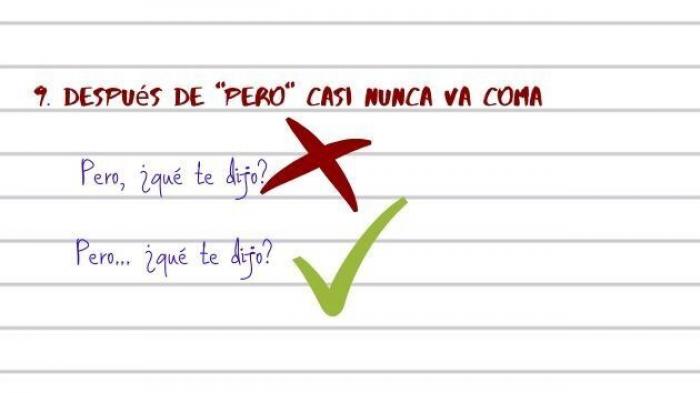 9. DESPUéS DE "PERO" CASI NUNCA VA COMA
Pero, ¿qué te dijo?
Pero... ¿qué te dijo?